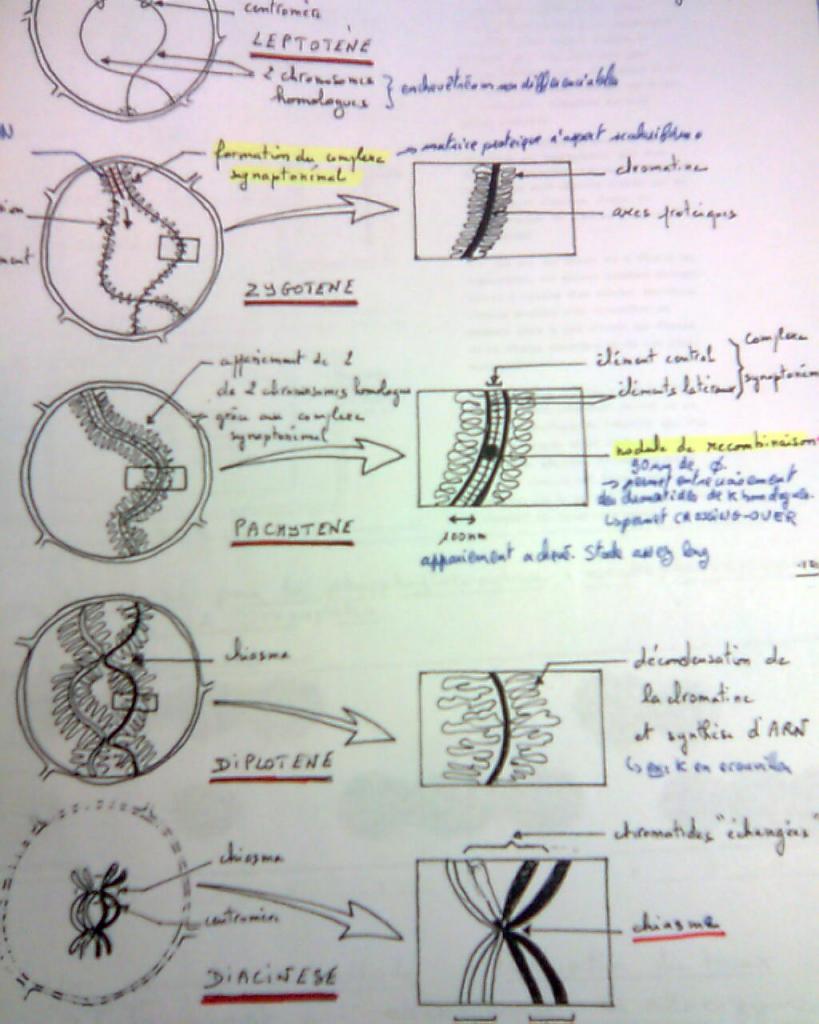 centromère
LEPTOTÈNE
2 chromosomes
homologues
formation du complexe
synaptonimal
→ matrice proteique d'aspect
chromatine
axes protéiques
ZYGOTENE
appariement de 2
de 2 chromosomes homologue
grâce au complexe
synaptonimal
élément central
éléments latéraux
complexe
nodule de recombinaison
90nm de ϕ.
→ permet entrecroisement
des chromatides de K homologues.
↳ permet CROSSING-OVER
PACHYTENE
100nm
appariement achevé. Stade assez long
chiasma
décondensation de
la chromatine
et synthèse d'ARN
DIPLOTENE
chromatides "échangées"
chiasma
centromère
chiasma
DIACINESE